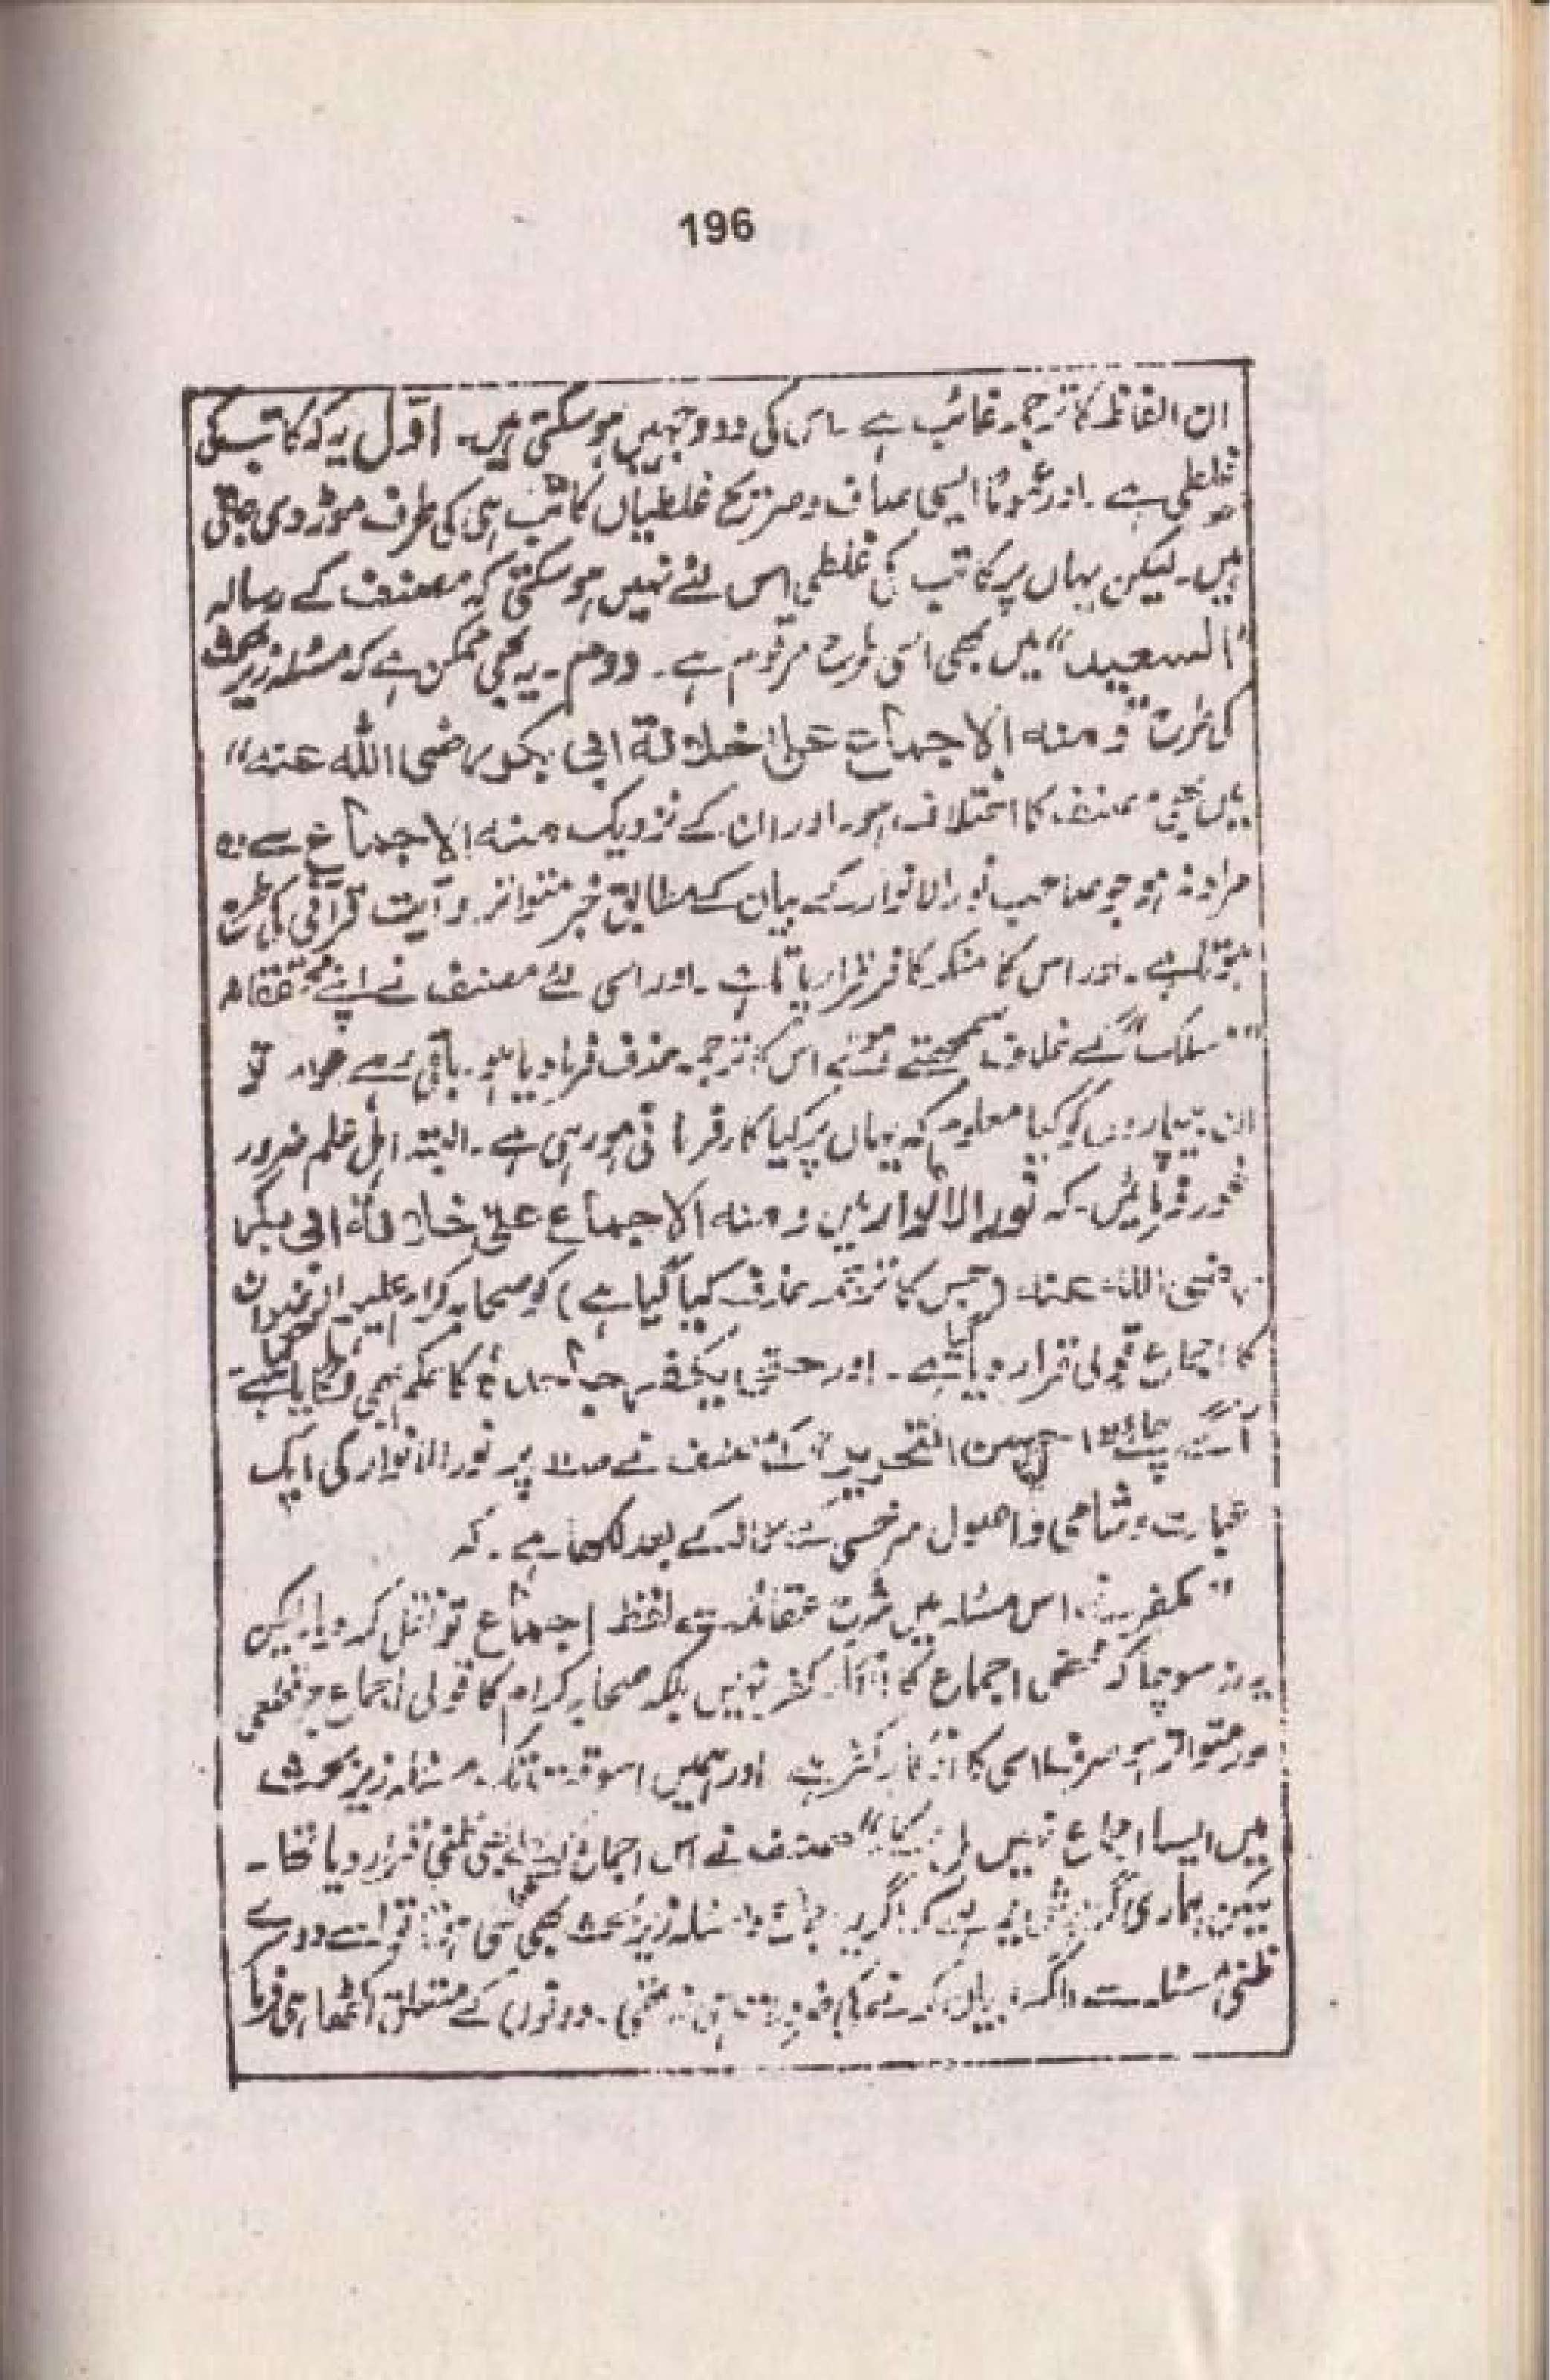 196
ان الفاظ کا ترجمہ غائب ہے ۔ اس کی دو وجہیں ہو سکتی ہیں۔ اوّل یہ کہ کاتب کی
غلطی ہے ۔ اور عموماً ایسی صاف و صریح غلطیاں کاتب ہی کی طرف موڑ دی جاتی
ہیں۔ لیکن یہاں پر کاتب کی غلطی اس لئے نہیں ہو سکتی کہ مصنف کے رسالہ
"السعید" میں بھی اسی طرح مرقوم ہے ۔ دوم ۔ یہ بھی ممکن ہے کہ مسئلہ زیر بحث
کی طرح "ومنه الاجماع على خلافة ابی بکر رضی الله عنه"
میں بھی مصنف کا اختلاف ہو۔ اور ان کے نزدیک منه الاجماع سے وہ
مراد نہ ہو جو صاحب نور الانوار کے بیان کے مطابق خبر متواتر و آیت قرآنی کی طرح
ہوتا ہے ۔ اور اس کا منکر کافر قرار پاتا ہے ۔ اور اسی لئے مصنف نے اپنے محققانہ
"مسلک" کے خلاف سمجھتے ہوئے اس کا ترجمہ حذف فرما دیا ہو۔ باقی رہے عوام تو
ان بیچاروں کو کیا معلوم کہ یہاں پر کیا کارفرمائی ہو رہی ہے ۔ البتہ اہل علم ضرور
غور فرمائیں ۔ کہ نور الانوار میں ومنه الاجماع على خلافة ابی بکر
رضی الله عنه (جس کا ترجمہ حذف کیا گیا ہے) کو صحابہ کرام علیہم الرضوان
کا اجماع قولی قرار دیا ہے ۔ اور حتی یکفر جاحدہ کا حکم بھی لگایا ہے
آگے احسن التحریر کے مصنف نے پر نور الانوار کی ایک
عبارت و شامی و اصول سرخسی کے حوالہ کے بعد لکھا ہے ۔ کہ
"مکفرین اس مسئلہ میں لفظ اجماع تو نقل کر دیا۔ لیکن
یہ نہ سوچا کہ محض اجماع کا انکار کفر نہیں بلکہ صحابہ کرام کا قولی اجماع جو قطعی
اور متواتر ہو صرف اسی کا انکار کفر ہے اور ہمیں اسوقت تک مسئلہ زیر بحث
میں ایسا اجماع نہیں مل سکا" مصنف نے اس اجماع ظنی قرار دیا تھا ۔
لیکن ہماری گزارش یہ ہے کہ اگر یہ مسئلہ زیر بحث بھی ہی تھا تو اسے دوسرے
بیان کرنے کی ضرورت ہی نہ تھی ۔ دونوں کے متعلق اکٹھا ہی فرما